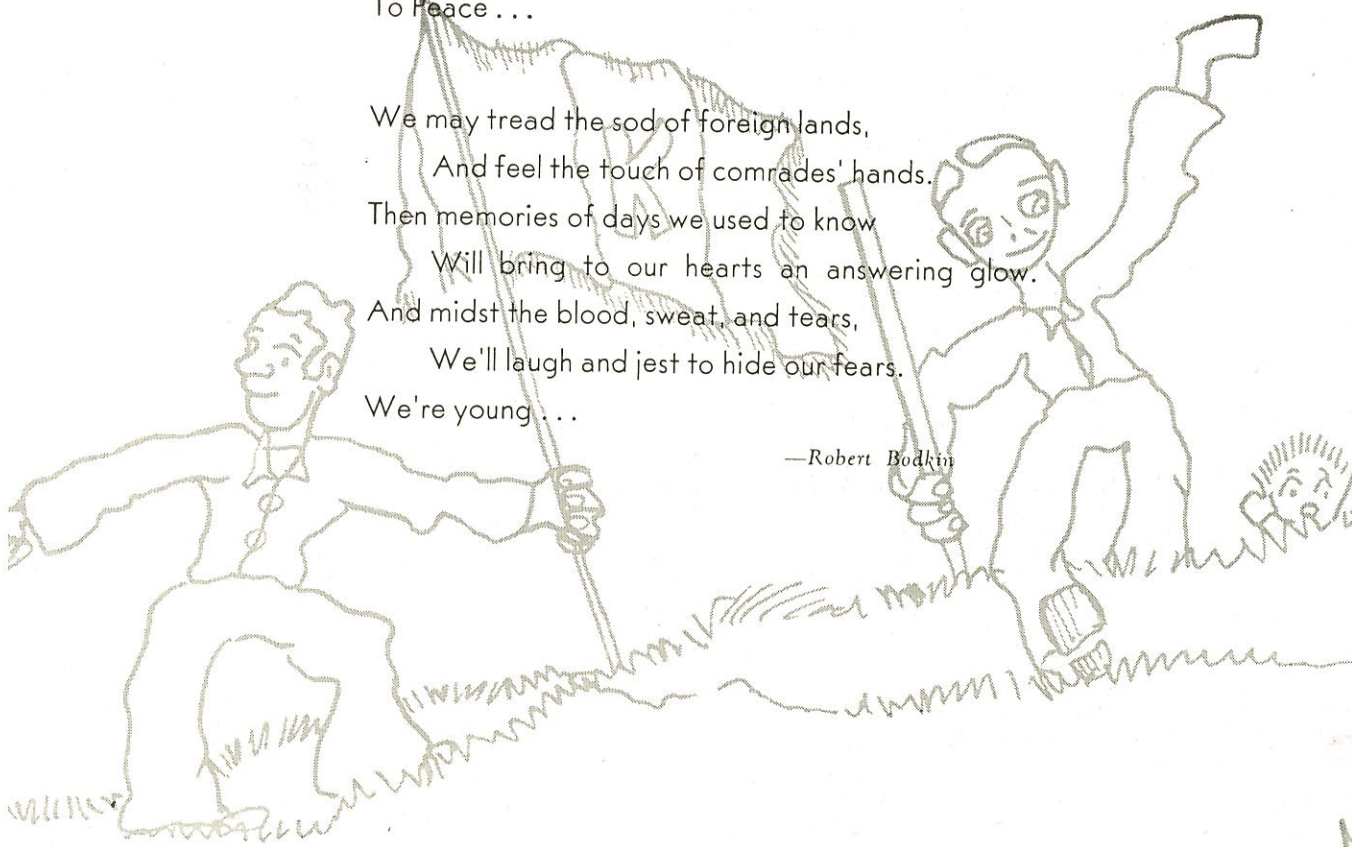 To Peace . . .
We may tread the sod of foreign lands,
And feel the touch of comrades' hands.
Then memories of days we used to know
Will bring to our hearts an answering glow.
And midst the blood, sweat, and tears,
We'll laugh and jest to hide our fears.
We're young . . .
—Robert Bodkin
K